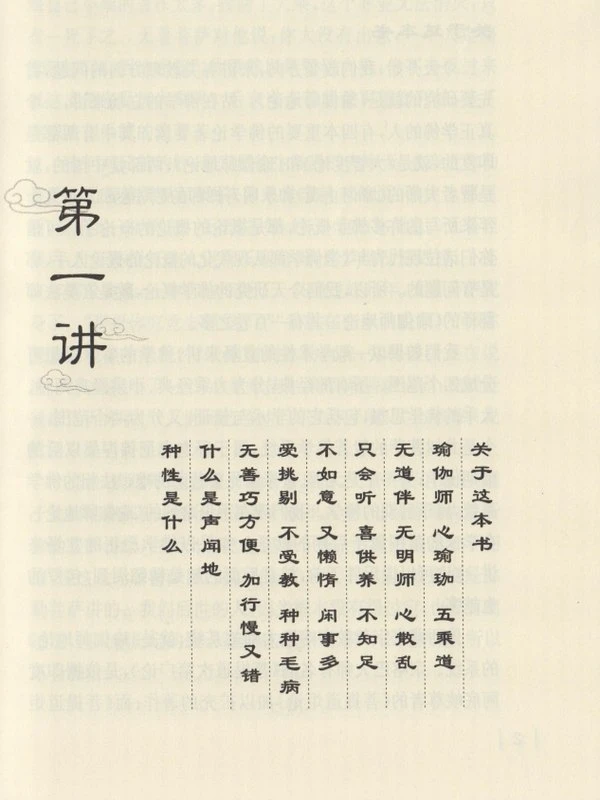 第一讲
关于这本书
瑜伽师 心瑜珈 五乘道
无道伴 无明师 心散乱
只会听 喜供养 不知足
不如意 又懒惰 闲事多
爱挑剔 不受教 种种毛病
无善巧方便 加行慢又错
什么是声闻地
种性是什么